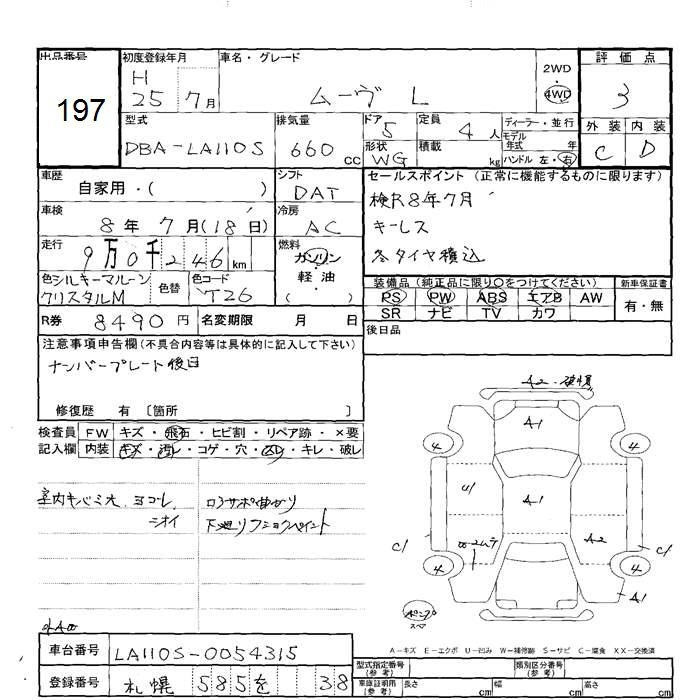 出品番号
197
初度登録年月
H
25 7月
車名・グレード
ムーヴ L
2WD
・
4WD
評価点
3
外装 内装
C D
型式
DBA-LA110S
排気量
660 cc
ドア 5
形状
WG
定員
4 人
積載
kg
ディーラー・並行
モデル
年式 年
ハンドル 左・右
車歴
自家用・( )
シフト
DAT
セールスポイント (正常に機能するものに限ります)
検R8年7月
キーレス
冬タイヤ積込
車検
8年 7月(18日)
冷房
AC
走行
9万0千246km
燃料
ガソリン
・
軽油
( )
色シルキーマルーン
クリスタルM
色替
色コード
T26
装備品 (純正品に限り○をつけてください)
PS PW ABS エアB AW
SR ナビ TV カワ
新車保証書
有・無
R券 8490円
名変期限 月 日
後日品
注意事項申告欄(不具合内容等は具体的に記入して下さい)
ナンバープレート後日
修復歴 有 〔箇所 〕
検査員
記入欄
FW キズ・飛石・ヒビ割・リペア跡・×要
内装 キズ・汚レ・コゲ・穴・スレ・キレ・破レ
ヨゴレ
シオイ
A2
A1
4
4
U1
A1
C1
A2
C1
4
4
A1
スペア
A-キズ E-エクボ U-凹み W-補修跡 S-サビ C-腐食 XX-交換済
車台番号 LA110S-0054315
登録番号 札幌 585 を 38
型式指定番号
(参考)
類別区分番号
(参考)
車庫証明用
(参考)
長さ cm 幅 cm 高さ cm